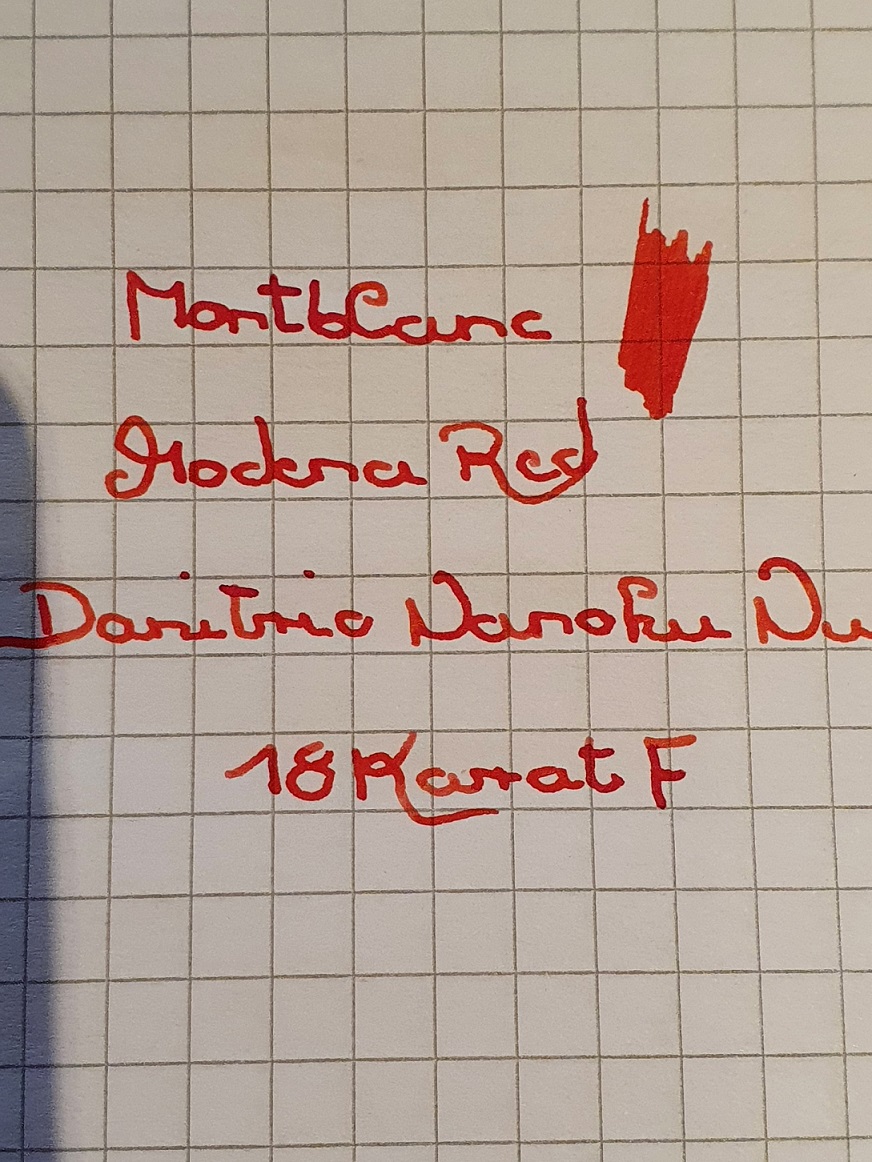 Montblanc
Modena Red
Danitrio Nanoku Nu
18 Karat F